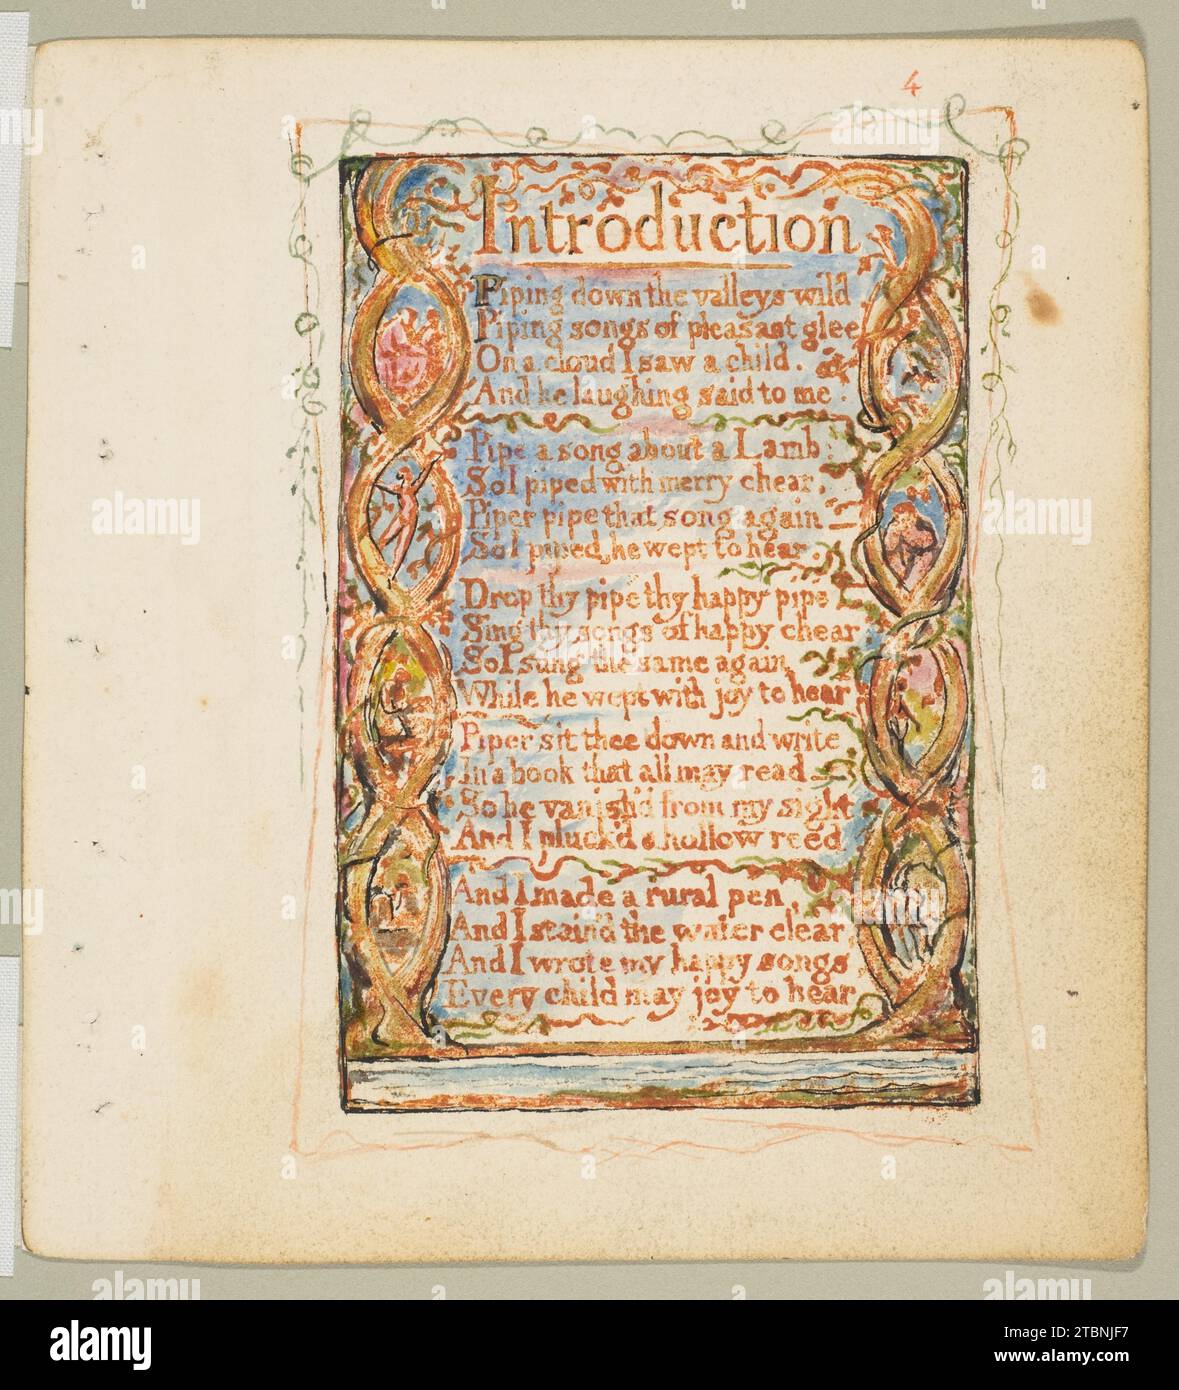 4
Introduction
Piping down the valleys wild
Piping songs of pleasant glee
On a cloud I saw a child.
And he laughing said to me.
Pipe a song about a Lamb:
So I piped with merry chear,
Piper pipe that song again—
So I piped, he wept to hear.
Drop thy pipe thy happy pipe
Sing thy songs of happy chear
So I sung the same again
While he wept with joy to hear
Piper sit thee down and write
In a book that all may read—
So he vanish'd from my sight
And I pluck'd a hollow reed
And I made a rural pen,
And I stain'd the water clear,
And I wrote my happy songs,
Every child may joy to hear
alamy
Image ID: 2TBNJF7
www.alamy.com